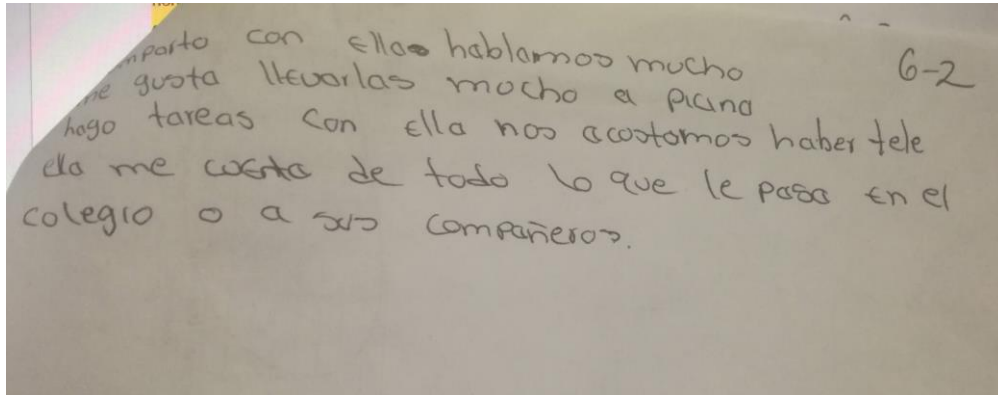 mparto con ella hablamos mucho
6-2
me gusta llevarlas mocho a picina
hago tareas con ella nos acostamos haber tele
ella me cuenta de todo lo que le pasa en el
colegio o a sus compañeros.